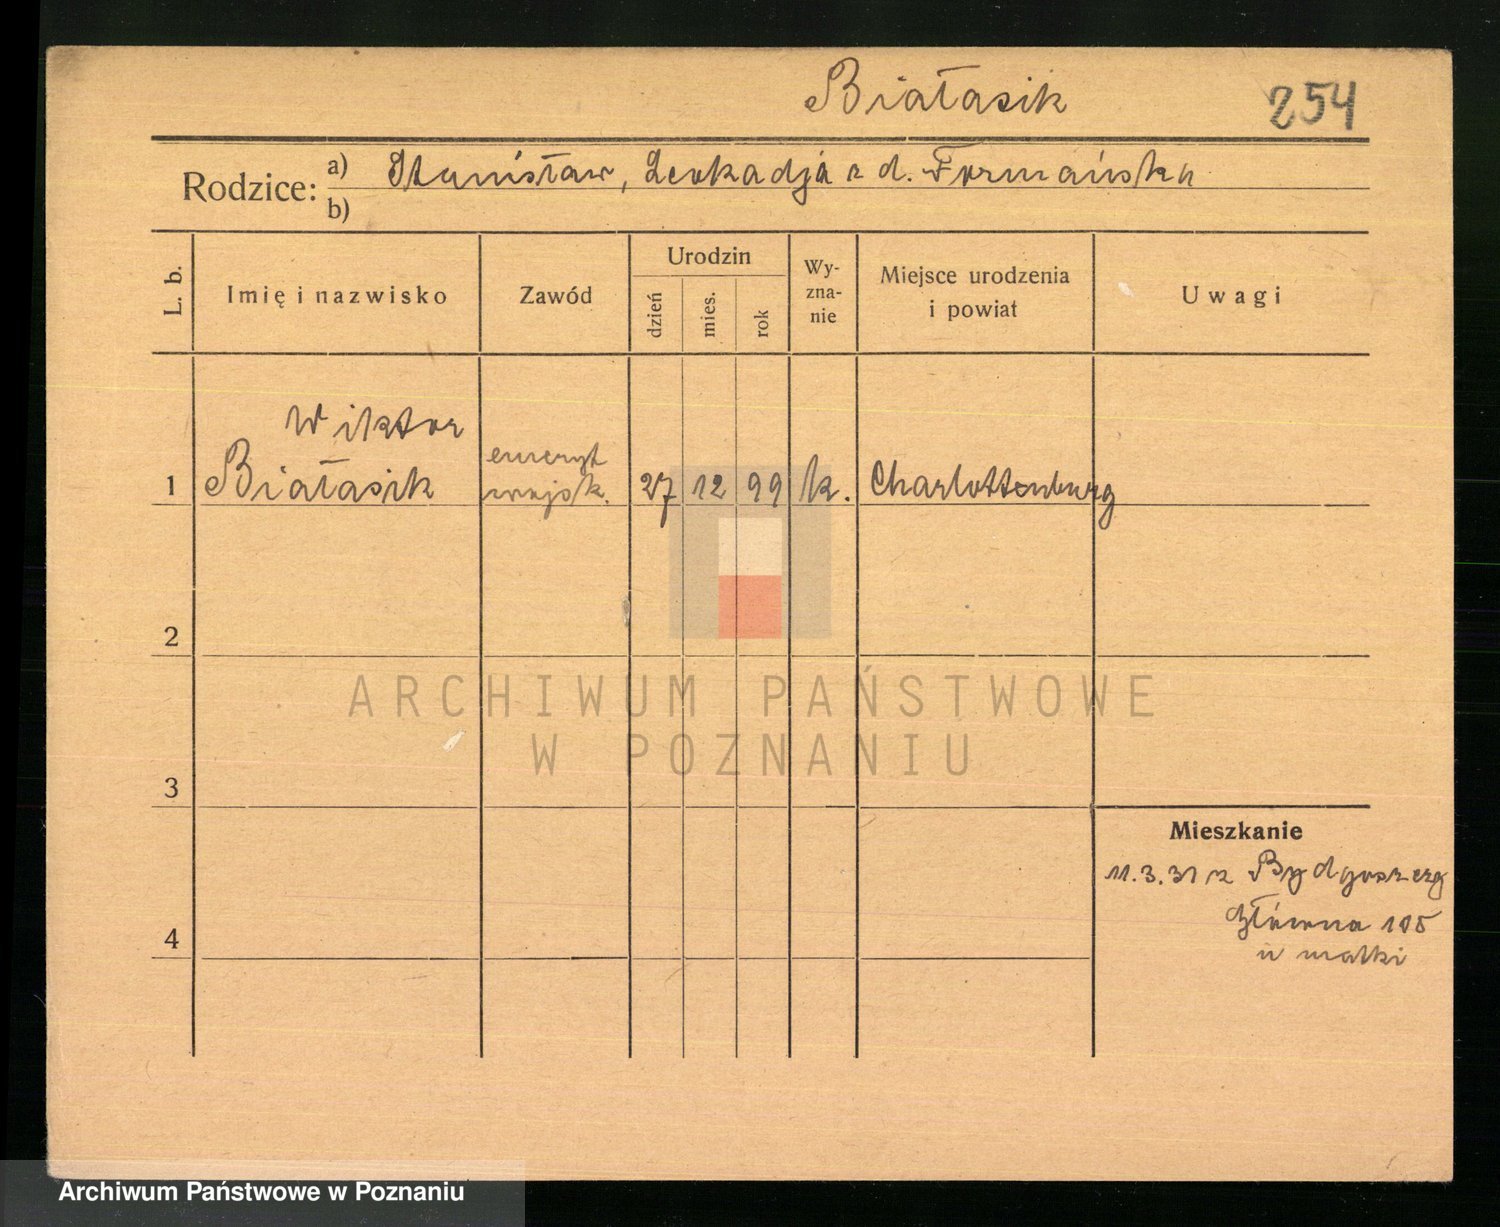 Białasik 254
Rodzice: a) Stanisław, Leokadja z d. Formańska
b)
L. b.
Imię i nazwisko
Zawód
Urodzin
dzień
mies.
rok
Wy-
zna-
nie
Miejsce urodzenia
i powiat
Uwagi
Wiktor
1 Białasik emeryt
wojsk. 27 12 99 k. Charlottenburg
2
3
4
Mieszkanie
11.3.31 z Bydgoszczy
Główna 105
u matki
ARCHIWUM PAŃSTWOWE
W POZNANIU
Archiwum Państwowe w Poznaniu